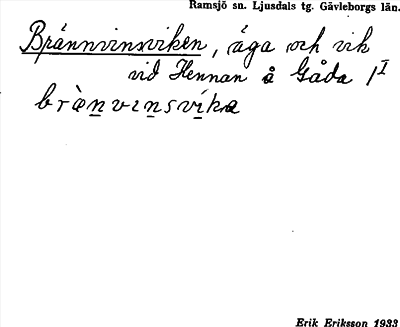 Ramsjö sn. Ljusdals tg. Gävleborgs län.
Brännvinsviken, äga och vik
vid Hennan å Gåda 1 I
brὰnvinsvika
Erik Eriksson 1933